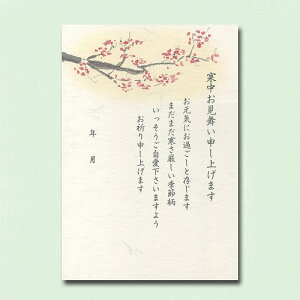 寒中お見舞い申し上げます
お元気にお過ごしと存じます
まだまだ寒さ厳しい季節柄
いっそうご自愛下さいますよう
お祈り申し上げます
年　月